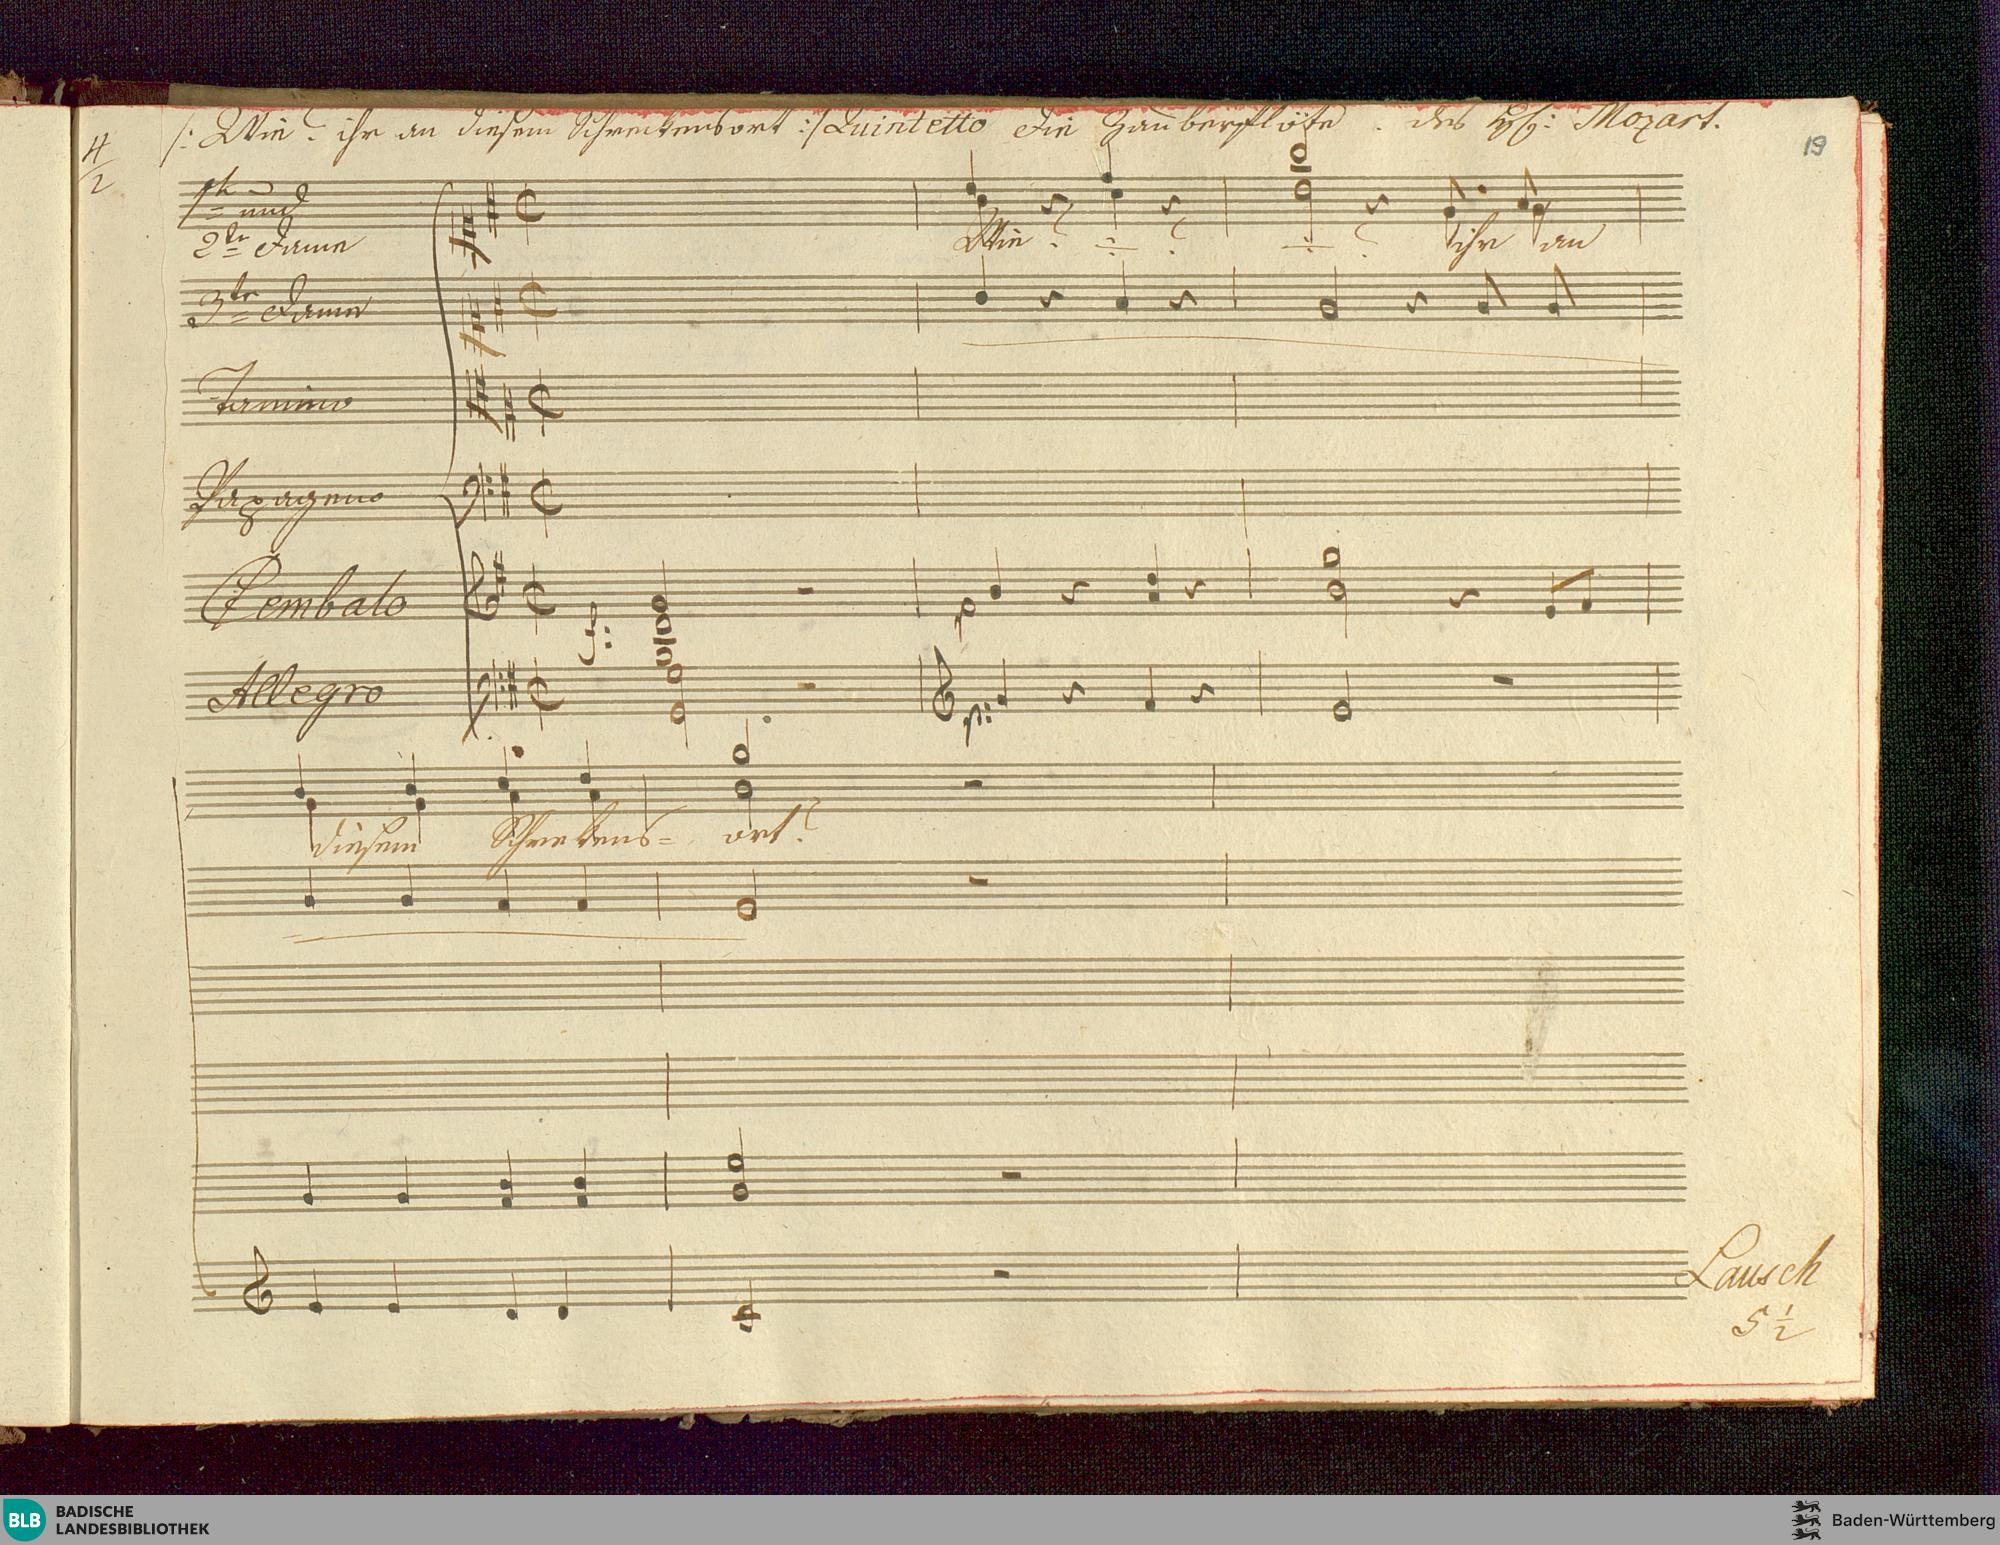 /: Wie? ihr an diesem Schreckensort :/ Quintetto die Zauberflöte. des H: Mozart.
4/2
19
1te und
2te Dame
Wie? ÷? ÷? ihr an
3te Dame
Tamino
Papageno
Cembalo
f:
p
Allegro
p:
diesem Schreckens= ort?
Lausch
5 1/2
BLB BADISCHE
LANDESBIBLIOTHEK
Baden-Württemberg